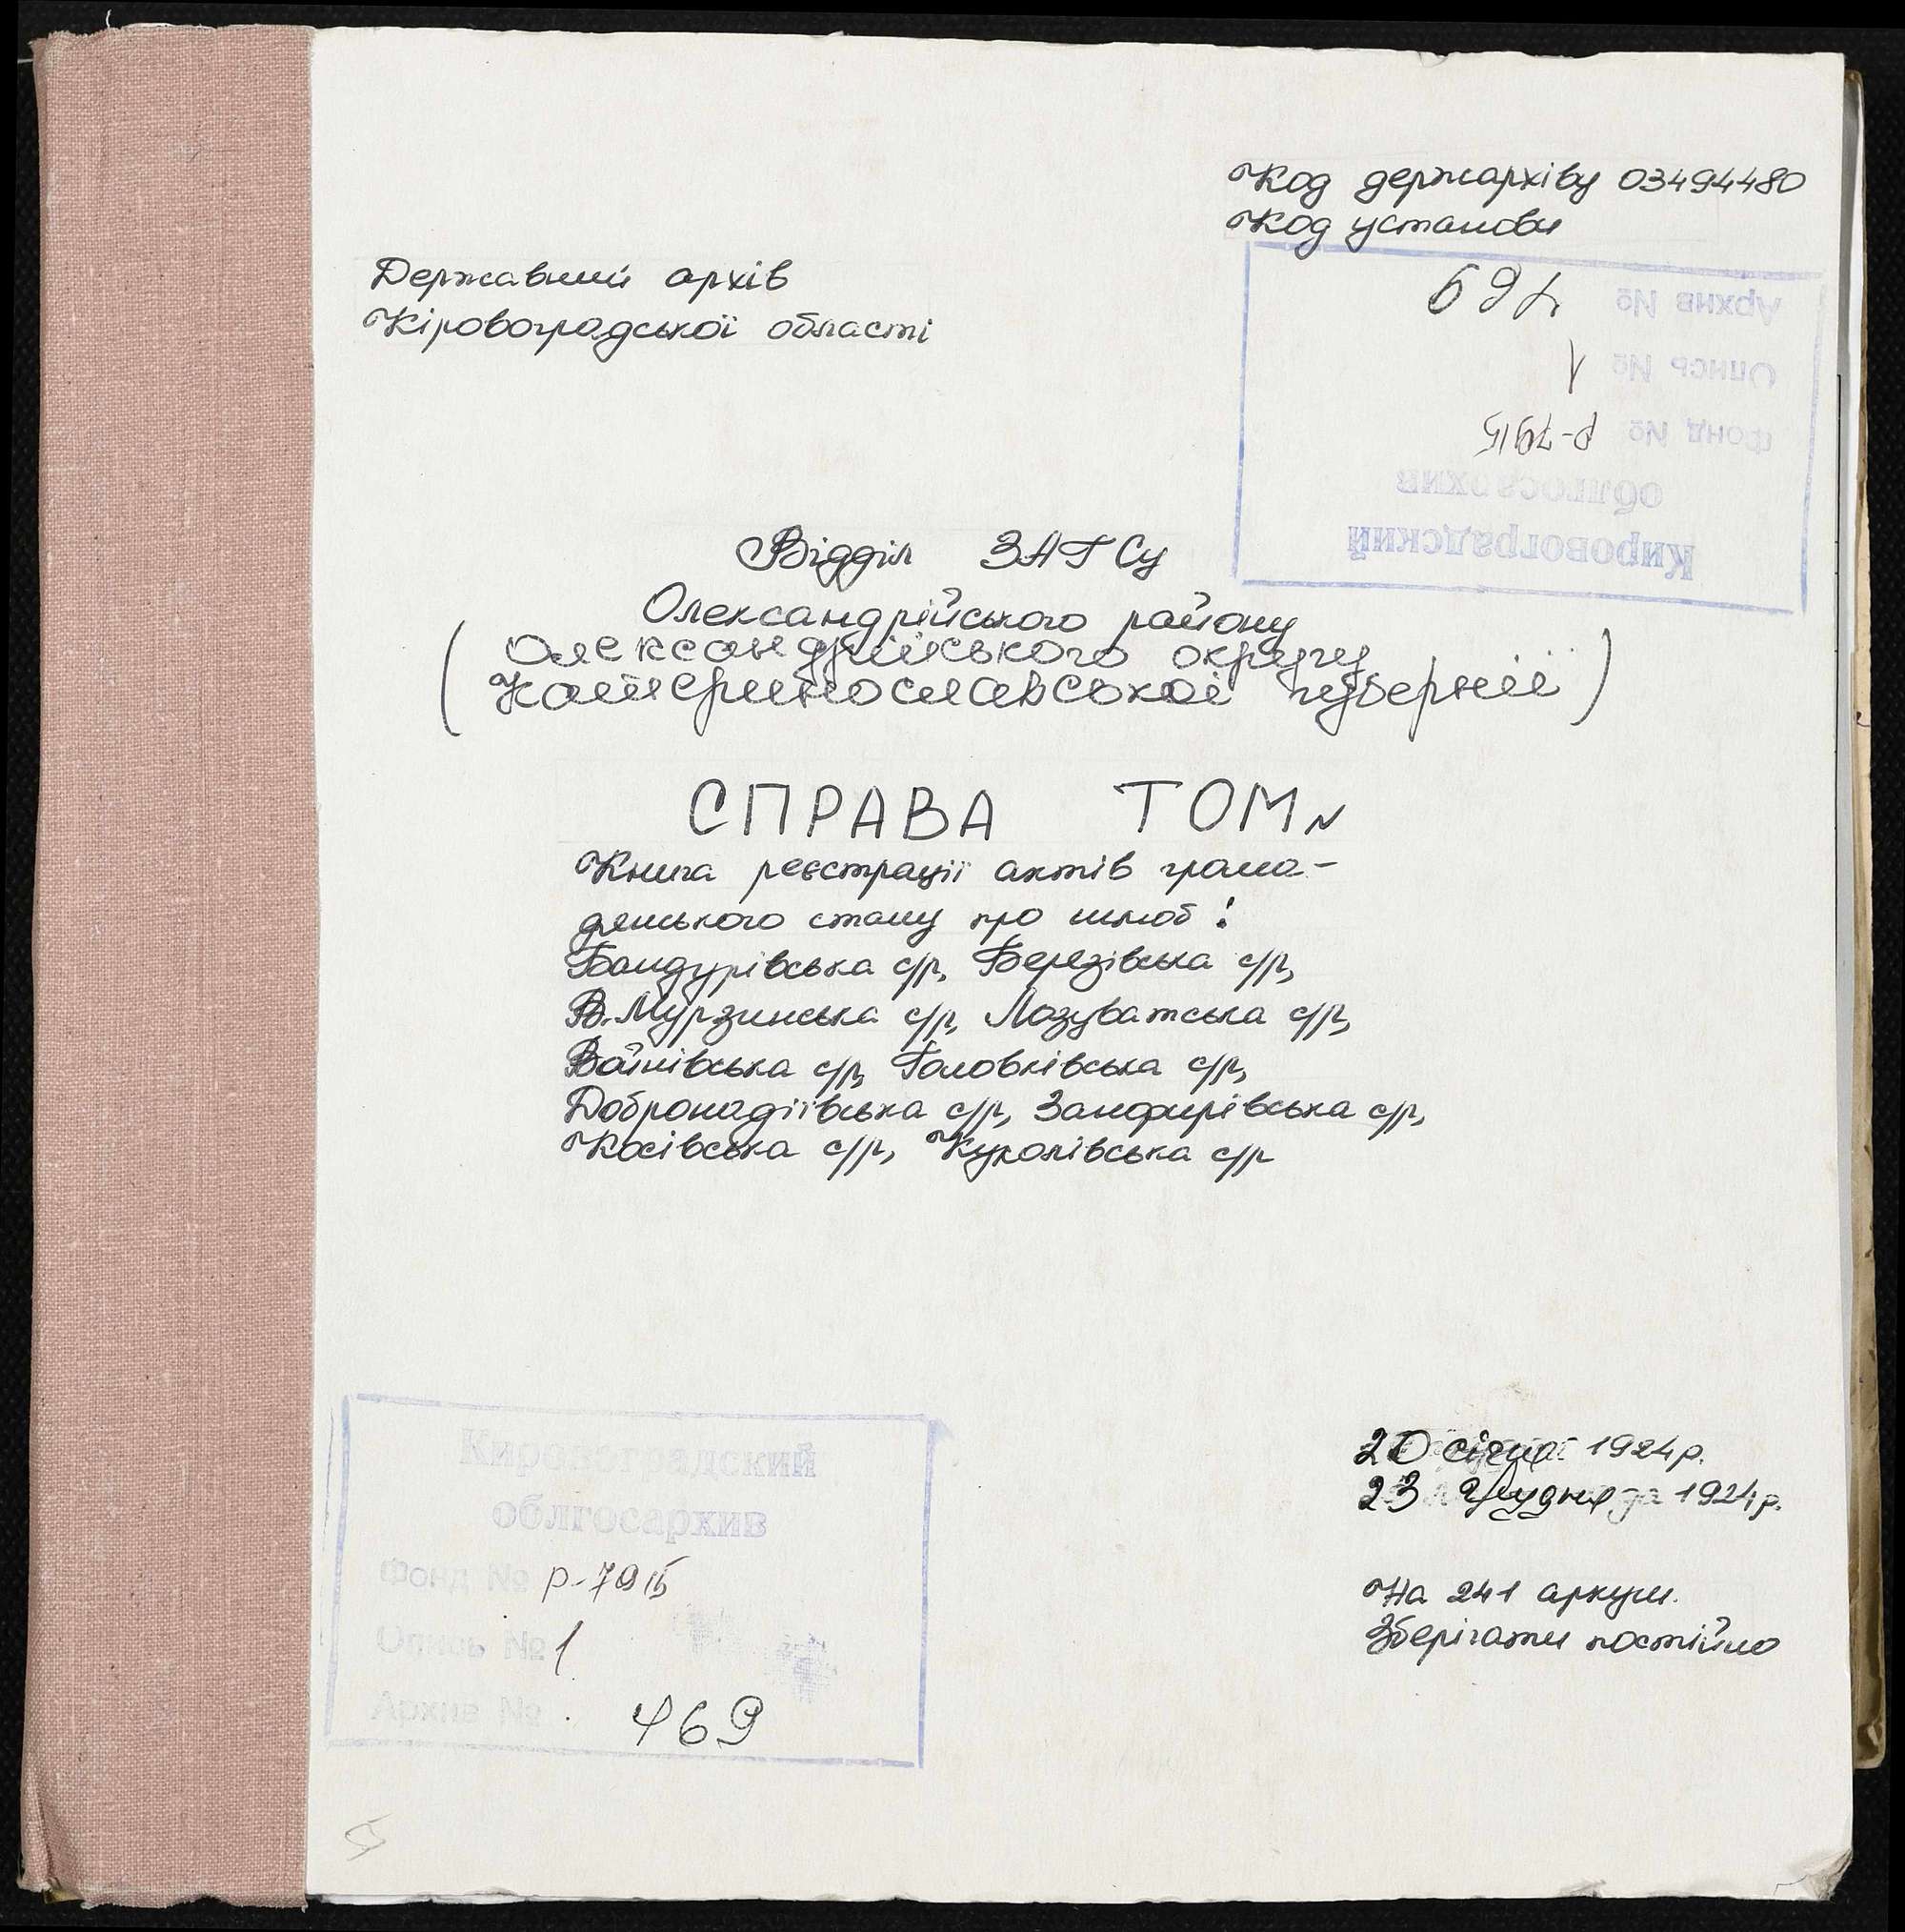 Код держархіву 03494480
Код установи
Державний архів
Кіровоградської області
Кировоградский
облгосархив
Фонд № Р-7915
Опись № 1
Архив № 469
Відділ ЗАГСу
Олександрійського району
(Олександрійського округу
Катеринославської губернії)
СПРАВА ТОМ N
Книга реєстрації актів грома-
дянського стану про шлюб:
Бандурівська с/р, Березівська с/р,
В.Мурзинська с/р, Лозуватська с/р,
Войнівська с/р, Головківська с/р,
Добронадіївська с/р, Занфирівська с/р,
Косівська с/р, Куколівська с/р
20 січня 1924 р.
23 грудня 1924 р.
На 241 аркуш.
Зберігати постійно
Кировоградский
облгосархив
Фонд № Р-7915
Опись № 1
Архив № 469